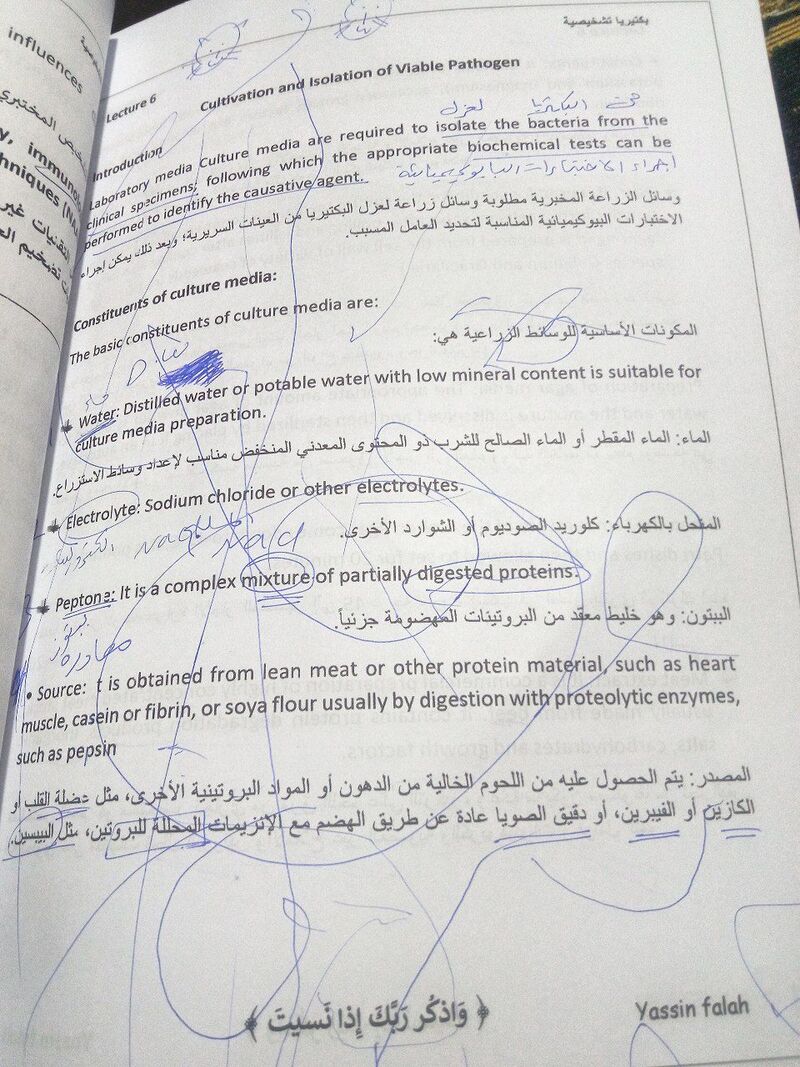 influences
بكتيريا تشخيصية
Lecture 6
Cultivation and Isolation of Viable Pathogen
Introduction
Laboratory media Culture media are required to isolate the bacteria from the
clinical specimens; following which the appropriate biochemical tests can be
performed to identify the causative agent.
وسائل الزراعة المخبرية مطلوبة وسائل زراعة لعزل البكتيريا من العينات السريرية؛ وبعد ذلك يمكن إجراء
الاختبارات البيوكيميائية المناسبة لتحديد العامل المسبب.
Constituents of culture media:
The basic constituents of culture media are:
المكونات الأساسية للوسائط الزراعية هي:
D.W
Water: Distilled water or potable water with low mineral content is suitable for
culture media preparation.
الماء: الماء المقطر أو الماء الصالح للشرب ذو المحتوى المعدني المنخفض مناسب لإعداد وسائط الاستزراع.
Electrolyte: Sodium chloride or other electrolytes.
المنحل بالكهرباء: كلوريد الصوديوم أو الشوارد الأخرى.
Peptone: It is a complex mixture of partially digested proteins.
الببتون: وهو خليط معقد من البروتينات المهضومة جزئياً.
مصادره
• Source: t is obtained from lean meat or other protein material, such as heart
muscle, casein or fibrin, or soya flour usually by digestion with proteolytic enzymes,
such as pepsin
المصدر: يتم الحصول عليه من اللحوم الخالية من الدهون أو المواد البروتينية الأخرى، مثل عضلة القلب أو
الكازين أو الفيبرين، أو دقيق الصويا عادة عن طريق الهضم مع الإنزيمات المحللة للبروتين، مثل البيبسين.
﴿ وَاذْكُر رَبَّكَ إِذَا نَسِيتَ ﴾
Yassin falah